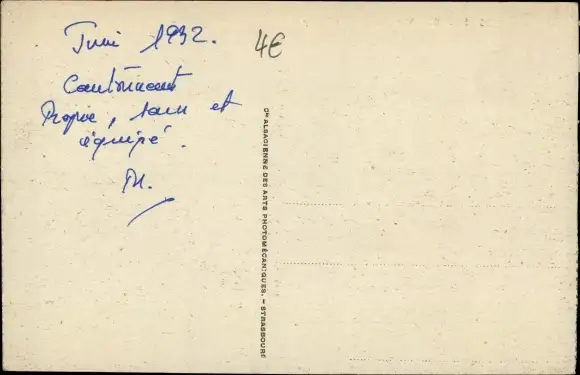 Juin 1932.
4€
Cantonnement
Propre, sain et
équipé.
M.
Cie ALSACIENNE DES ARTS PHOTOMÉCANIQUES. - STRASBOURG